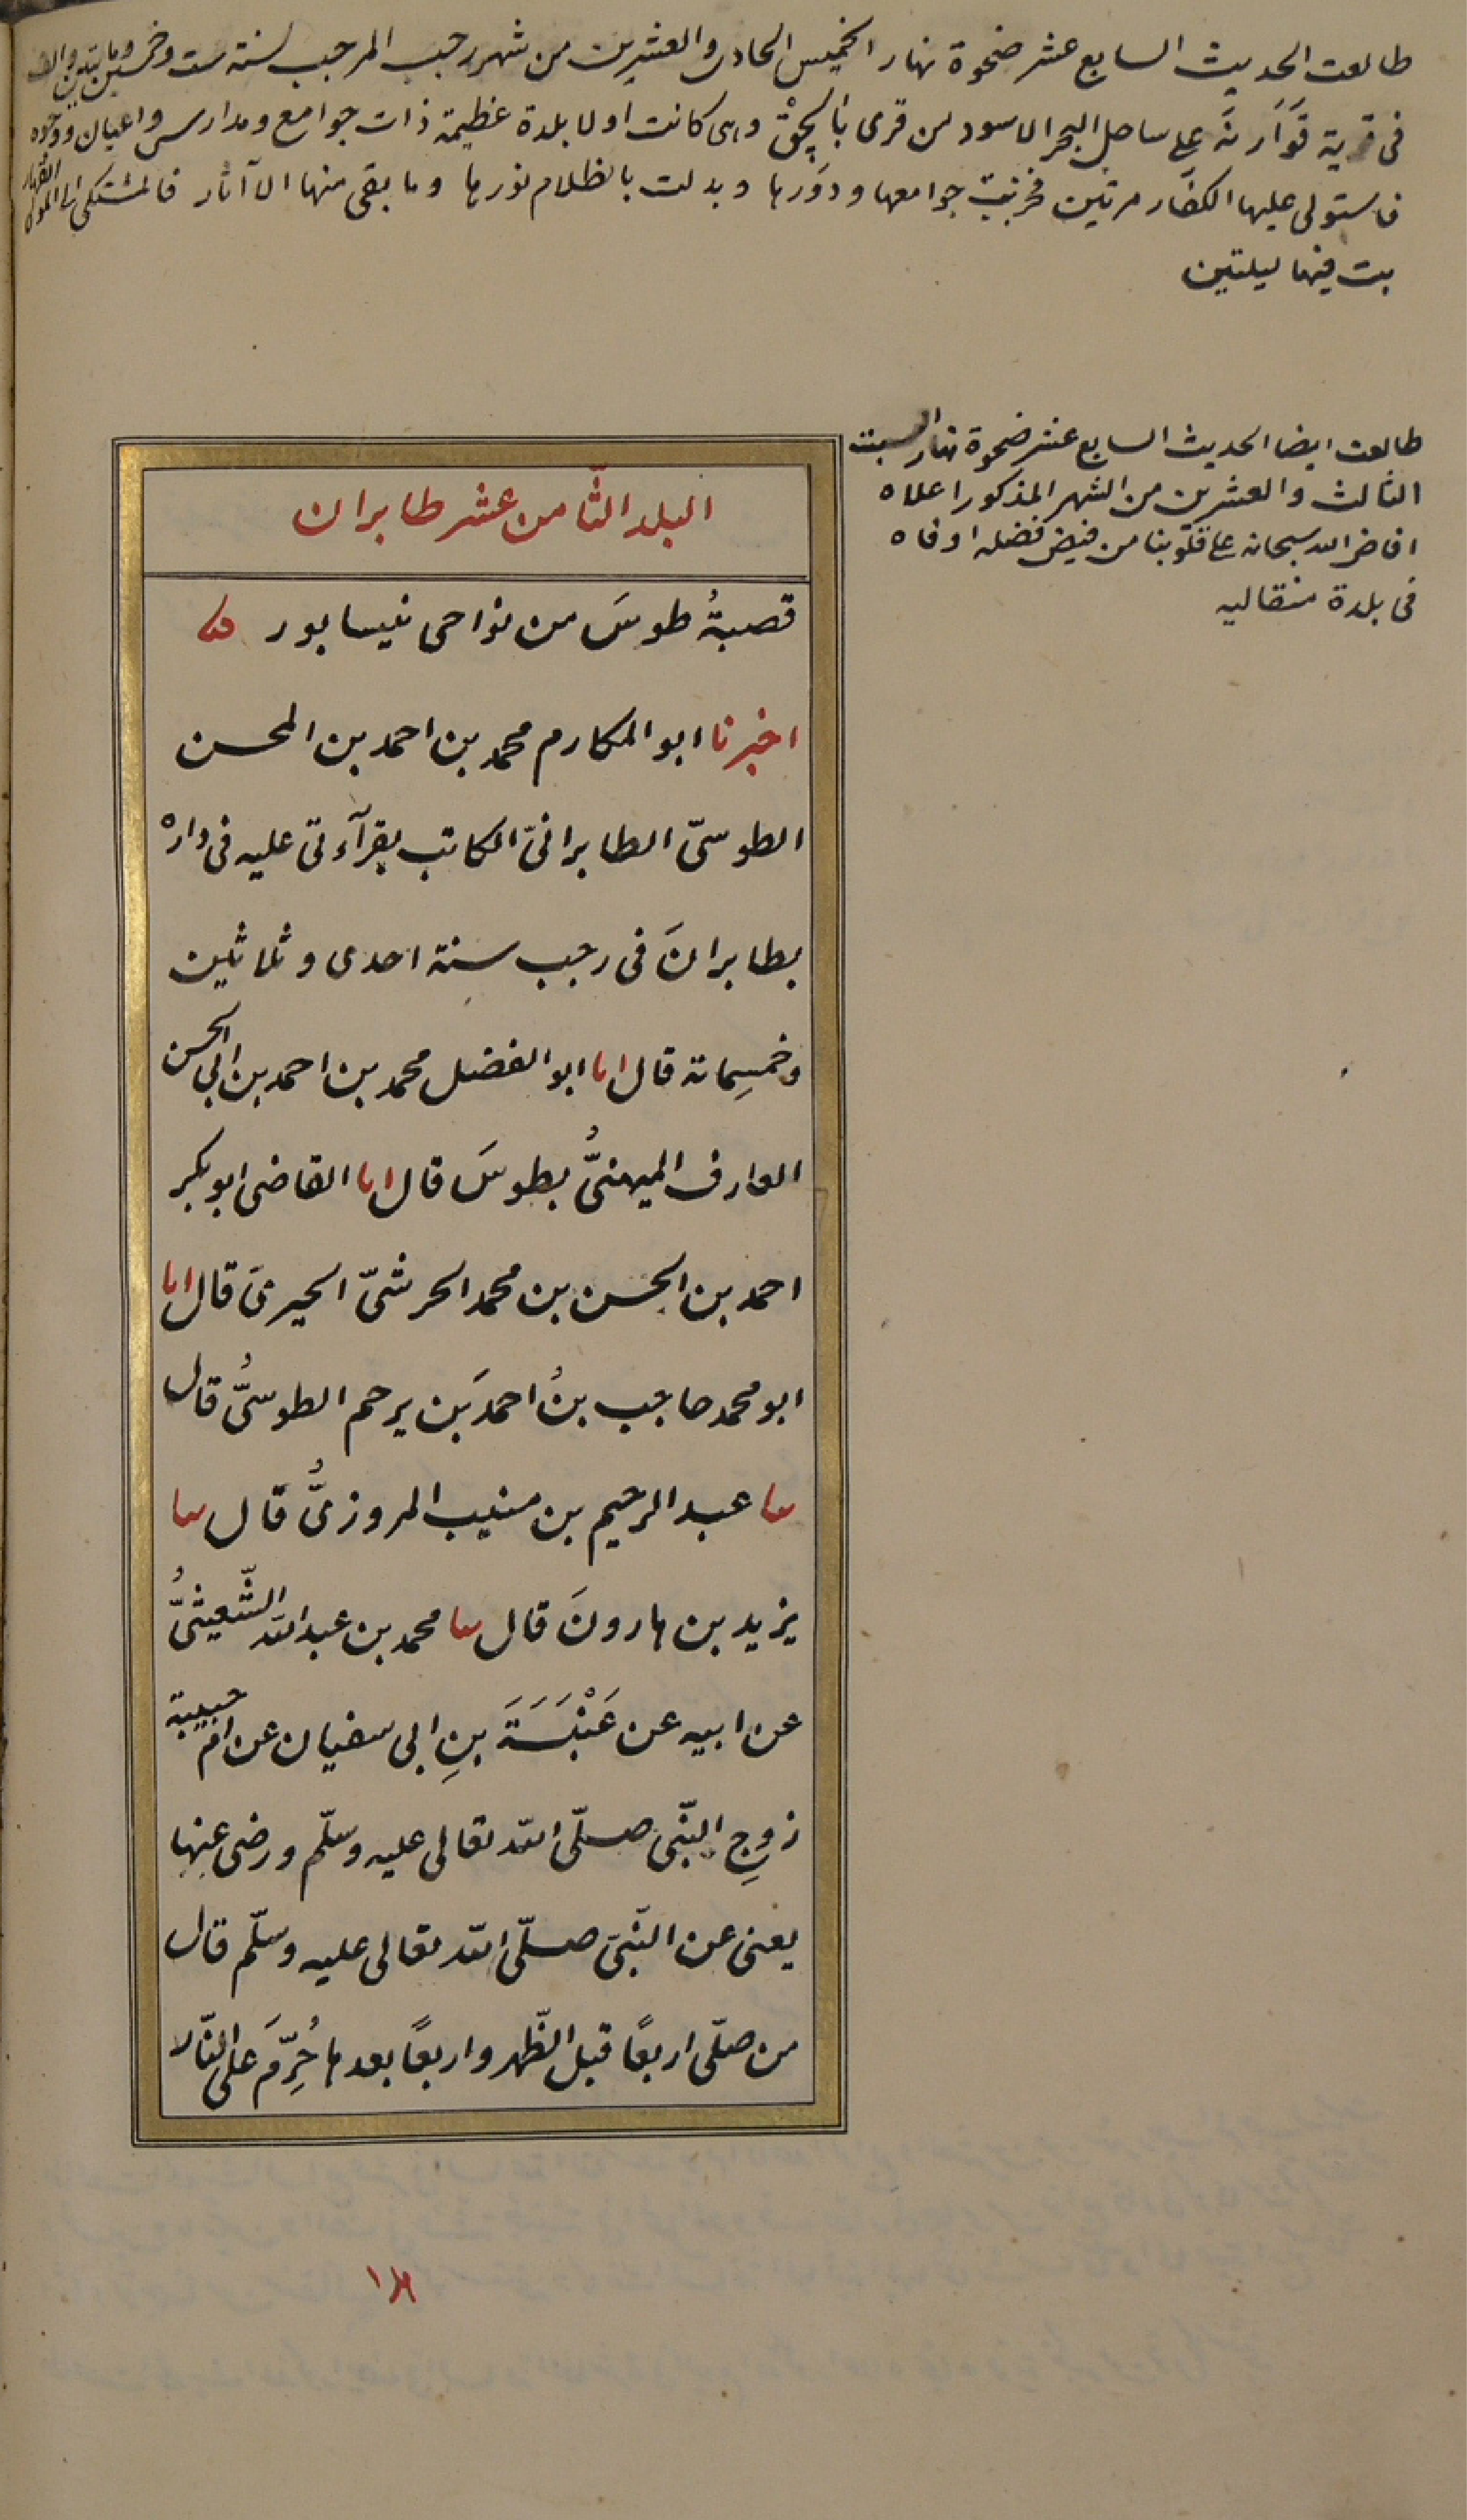 طالعت الحديث السابع عشر ضحوة نهار الخميس الحادى والعشرين من شهر رجب المرجب لسنة ست وخمسين ومايتين والف
فى قرية قَوَارنَه على ساحل البحر الاسود من قرى بَالْچِقْ وهى كانت اولا بلدة عظيمة ذات جوامع ومدارس واعيان ووجوه
فاستولى عليها الكفار مرتين فخربت جوامعها ودورها وبدلت بالظلام نورها وما بقى منها الا آثار فالمشتكى الى المولى القهار
بت فيها ليلتين
طالعت ايضا الحديث السابع عشر ضحوة نهار السبت
الثالث والعشرين من الشهر المذكور اعلاه
افاض الله سبحانه على قلوبنا من فيض فضله اوفاه
فى بلدة منقاليه
البلد الثّامن عشر طابران
قصبةُ طوسَ من نواحى نيسابور
اخبرنا ابو المكارم محمد بن احمد بن المحسن
الطوسىّ الطابرانىّ الكاتب بقرآءتى عليه فى داره
بطابرانَ فى رجب سنة احدى وثلاثين
وخمسِمائة قال انا ابو الفضل محمد بن احمد بن ابى الحسن
العارف الميهنىُّ بطوسَ قال انا القاضى ابو بكر
احمد بن الحسن بن محمد الحرشىّ الحيرىّ قال انا
ابو محمد حاجب بنُ احمدَ بن يرحم الطوسىُّ قال
نا عبد الرحيم بن منيب المروزىُّ قال نا
يزيد بن هارونَ قال نا محمد بن عبد الله الشّعيثىُّ
عن ابيه عن عَنْبَسَةَ بنِ ابى سفيان عن ام حبيبة
زوجِ النّبى صلّى الله تعالى عليه وسلّم ورضى عنها
يعنى عن النّبى صلّى الله تعالى عليه وسلّم قال
من صلّى اربعًا قبل الظّهر واربعًا بعدها حُرِّمَ على النّار
١٨